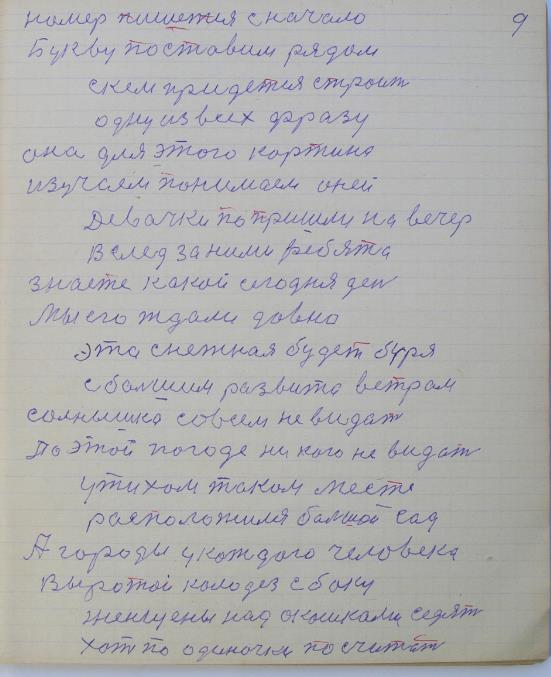 9
номер пишется с начало
Букву поставим рядом
скем придется строит
одну из всех фразу
она для этого картина
изучаем понимаем оней
Девачки попришли на вечер
В след за ними ребята
знаете какой сегодня ден
Мы его ждали довно
эта снежная будет буря
с балшим развита ветрам
солнышка совсем не видат
По этой погоде ни кого не видат
у тихом таком месте
расположился балшой сад
А городы у каждого человека
Выротой колодез с боку
женщены над окошками седят
хот по одиночки посчитат